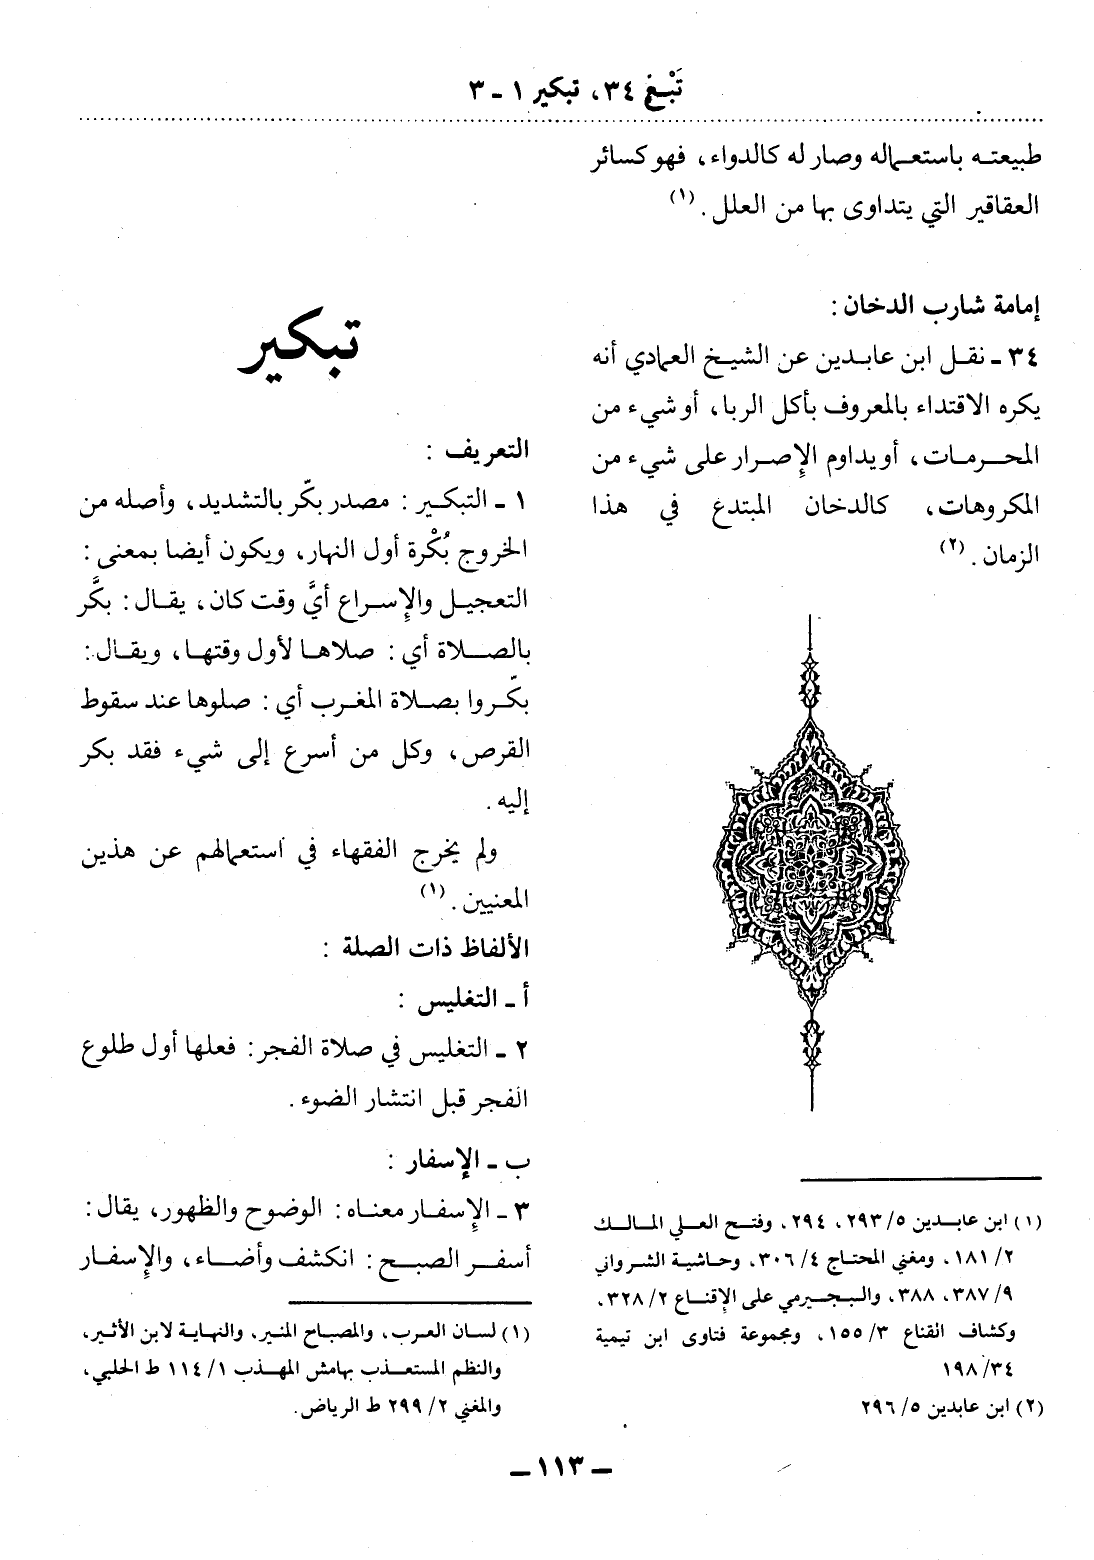 تَبْغ ٣٤، تبكير ١ - ٣
طبيعته باستعماله وصار له كالدواء، فهو كسائر
العقاقير التي يتداوى بها من العلل. (١)
إمامة شارب الدخان :
٣٤ - نقل ابن عابدين عن الشيخ العمادي أنه
يكره الاقتداء بالمعروف بأكل الربا، أو شيء من
المحرمات، أو يداوم الإصرار على شيء من
المكروهات، كالدخان المبتدع في هذا
الزمان. (٢)
(١) ابن عابدين ٥/ ٢٩٣، ٢٩٤، وفتح العلي المالك
٢/ ١٨١، ومغني المحتاج ٤/ ٣٠٦، وحاشية الشرواني
٩/ ٣٨٧، ٣٨٨، والبجيرمي على الإقناع ٢/ ٣٢٨،
وكشاف القناع ٣/ ١٥٥، ومجموعة فتاوى ابن تيمية
٣٤/ ١٩٨
(٢) ابن عابدين ٥/ ٢٩٦
تبكير
التعريف :
١ - التبكير : مصدر بكّر بالتشديد، وأصله من
الخروج بُكْرة أول النهار، ويكون أيضا بمعنى :
التعجيل والإسراع أيَّ وقت كان، يقال : بكَّر
بالصلاة أي : صلاها لأول وقتها، ويقال :
بكّروا بصلاة المغرب أي : صلوها عند سقوط
القرص، وكل من أسرع إلى شيء فقد بكر
إليه.
ولم يخرج الفقهاء في استعمالهم عن هذين
المعنيين. (١)
الألفاظ ذات الصلة :
أ - التغليس :
٢ - التغليس في صلاة الفجر : فعلها أول طلوع
الفجر قبل انتشار الضوء.
ب - الإسفار :
٣ - الإسفار معناه : الوضوح والظهور، يقال :
أسفر الصبح : انكشف وأضاء، والإسفار
(١) لسان العرب، والمصباح المنير، والنهاية لابن الأثير،
والنظم المستعذب بهامش المهذب ١/ ١١٤ ط الحلبي،
والمغني ٢/ ٢٩٩ ط الرياض.
- ١١٣ -